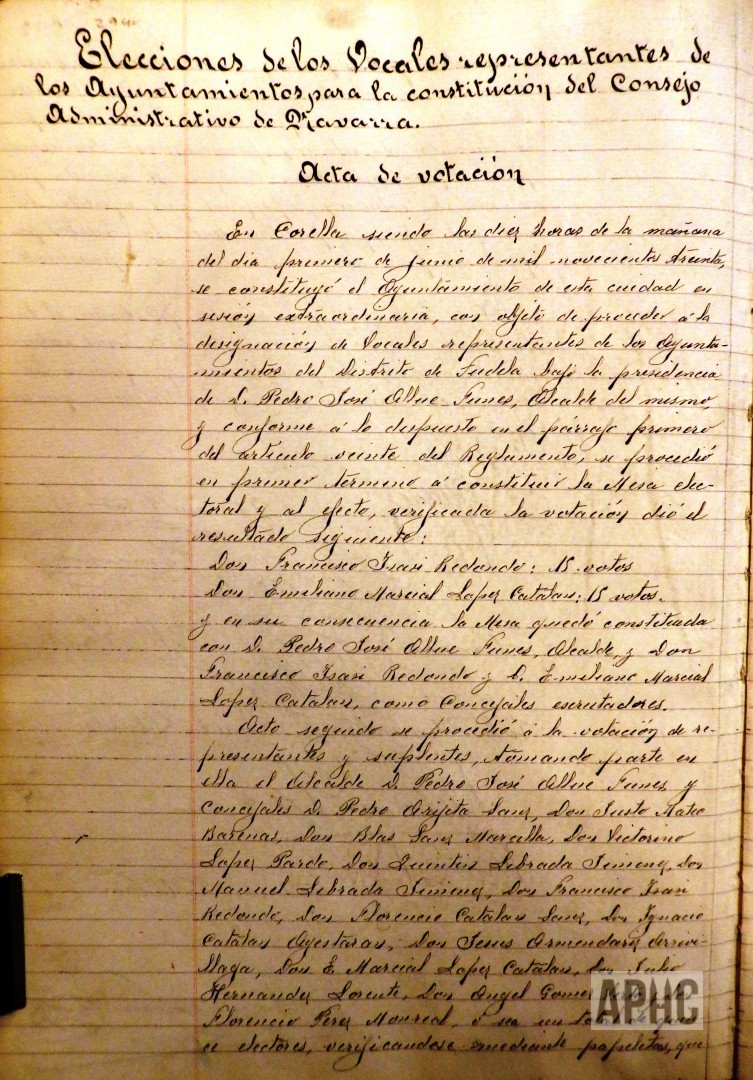 Elecciones de los Vocales representantes de
los Ayuntamientos para la constitución del Consejo
Administrativo de Navarra.
Acta de votación
En Corella siendo las diez horas de la mañana
del dia primero de junio de mil novecientos treinta,
se constituyó el Ayuntamiento de esta ciudad en
sesión extraordinaria, con objeto de proceder á la
designación de Vocales representantes de los Ayunta-
mientos del Distrito de Tudela bajo la presidencia
de D. Pedro José Ollue Funes, Alcalde del mismo,
y conforme á lo dispuesto en el párrafo primero
del artículo veinte del Reglamento, se procedió
en primer término á constituir la Mesa elec-
toral y al efecto, verificada la votación dió el
resultado siguiente:
Don Francisco Isasi Redondo: 15 votos
Don Emiliano Marcial Lopez Catalan: 15 votos.
y en su consecuencia la Mesa quedó constituida
con D. Pedro José Ollue Funes, Alcalde, y Don
Francisco Isasi Redondo y D. Emiliano Marcial
Lopez Catalan, como Concejales escrutadores.
Acto seguido se procedió á la votación de re-
presentantes y suplentes, tomando parte en
ella el Alcalde D. Pedro José Ollue Funes y
Concejales D. Pedro Arijita Sanz, Don Justo Mateo
Bareñas, Don Blas Sanz Marcilla, Don Victorino
Lopez Pardo, Don Quintin Librada Jimenez, Don
Manuel Librada Jimenez, Don Francisco Isasi
Redondo, Don Florencio Catalan Sanz, Don Ignacio
Catalan Ayestaran, Don Jesus Armendariz Arrivi-
llaga, Don E. Marcial Lopez Catalan, Don Julio
Hernandez Lorente, Don Angel Gomez
Florencio Perez Monreal, ó sea un
ce electores, verificandose mediante papeletas, que
APHC